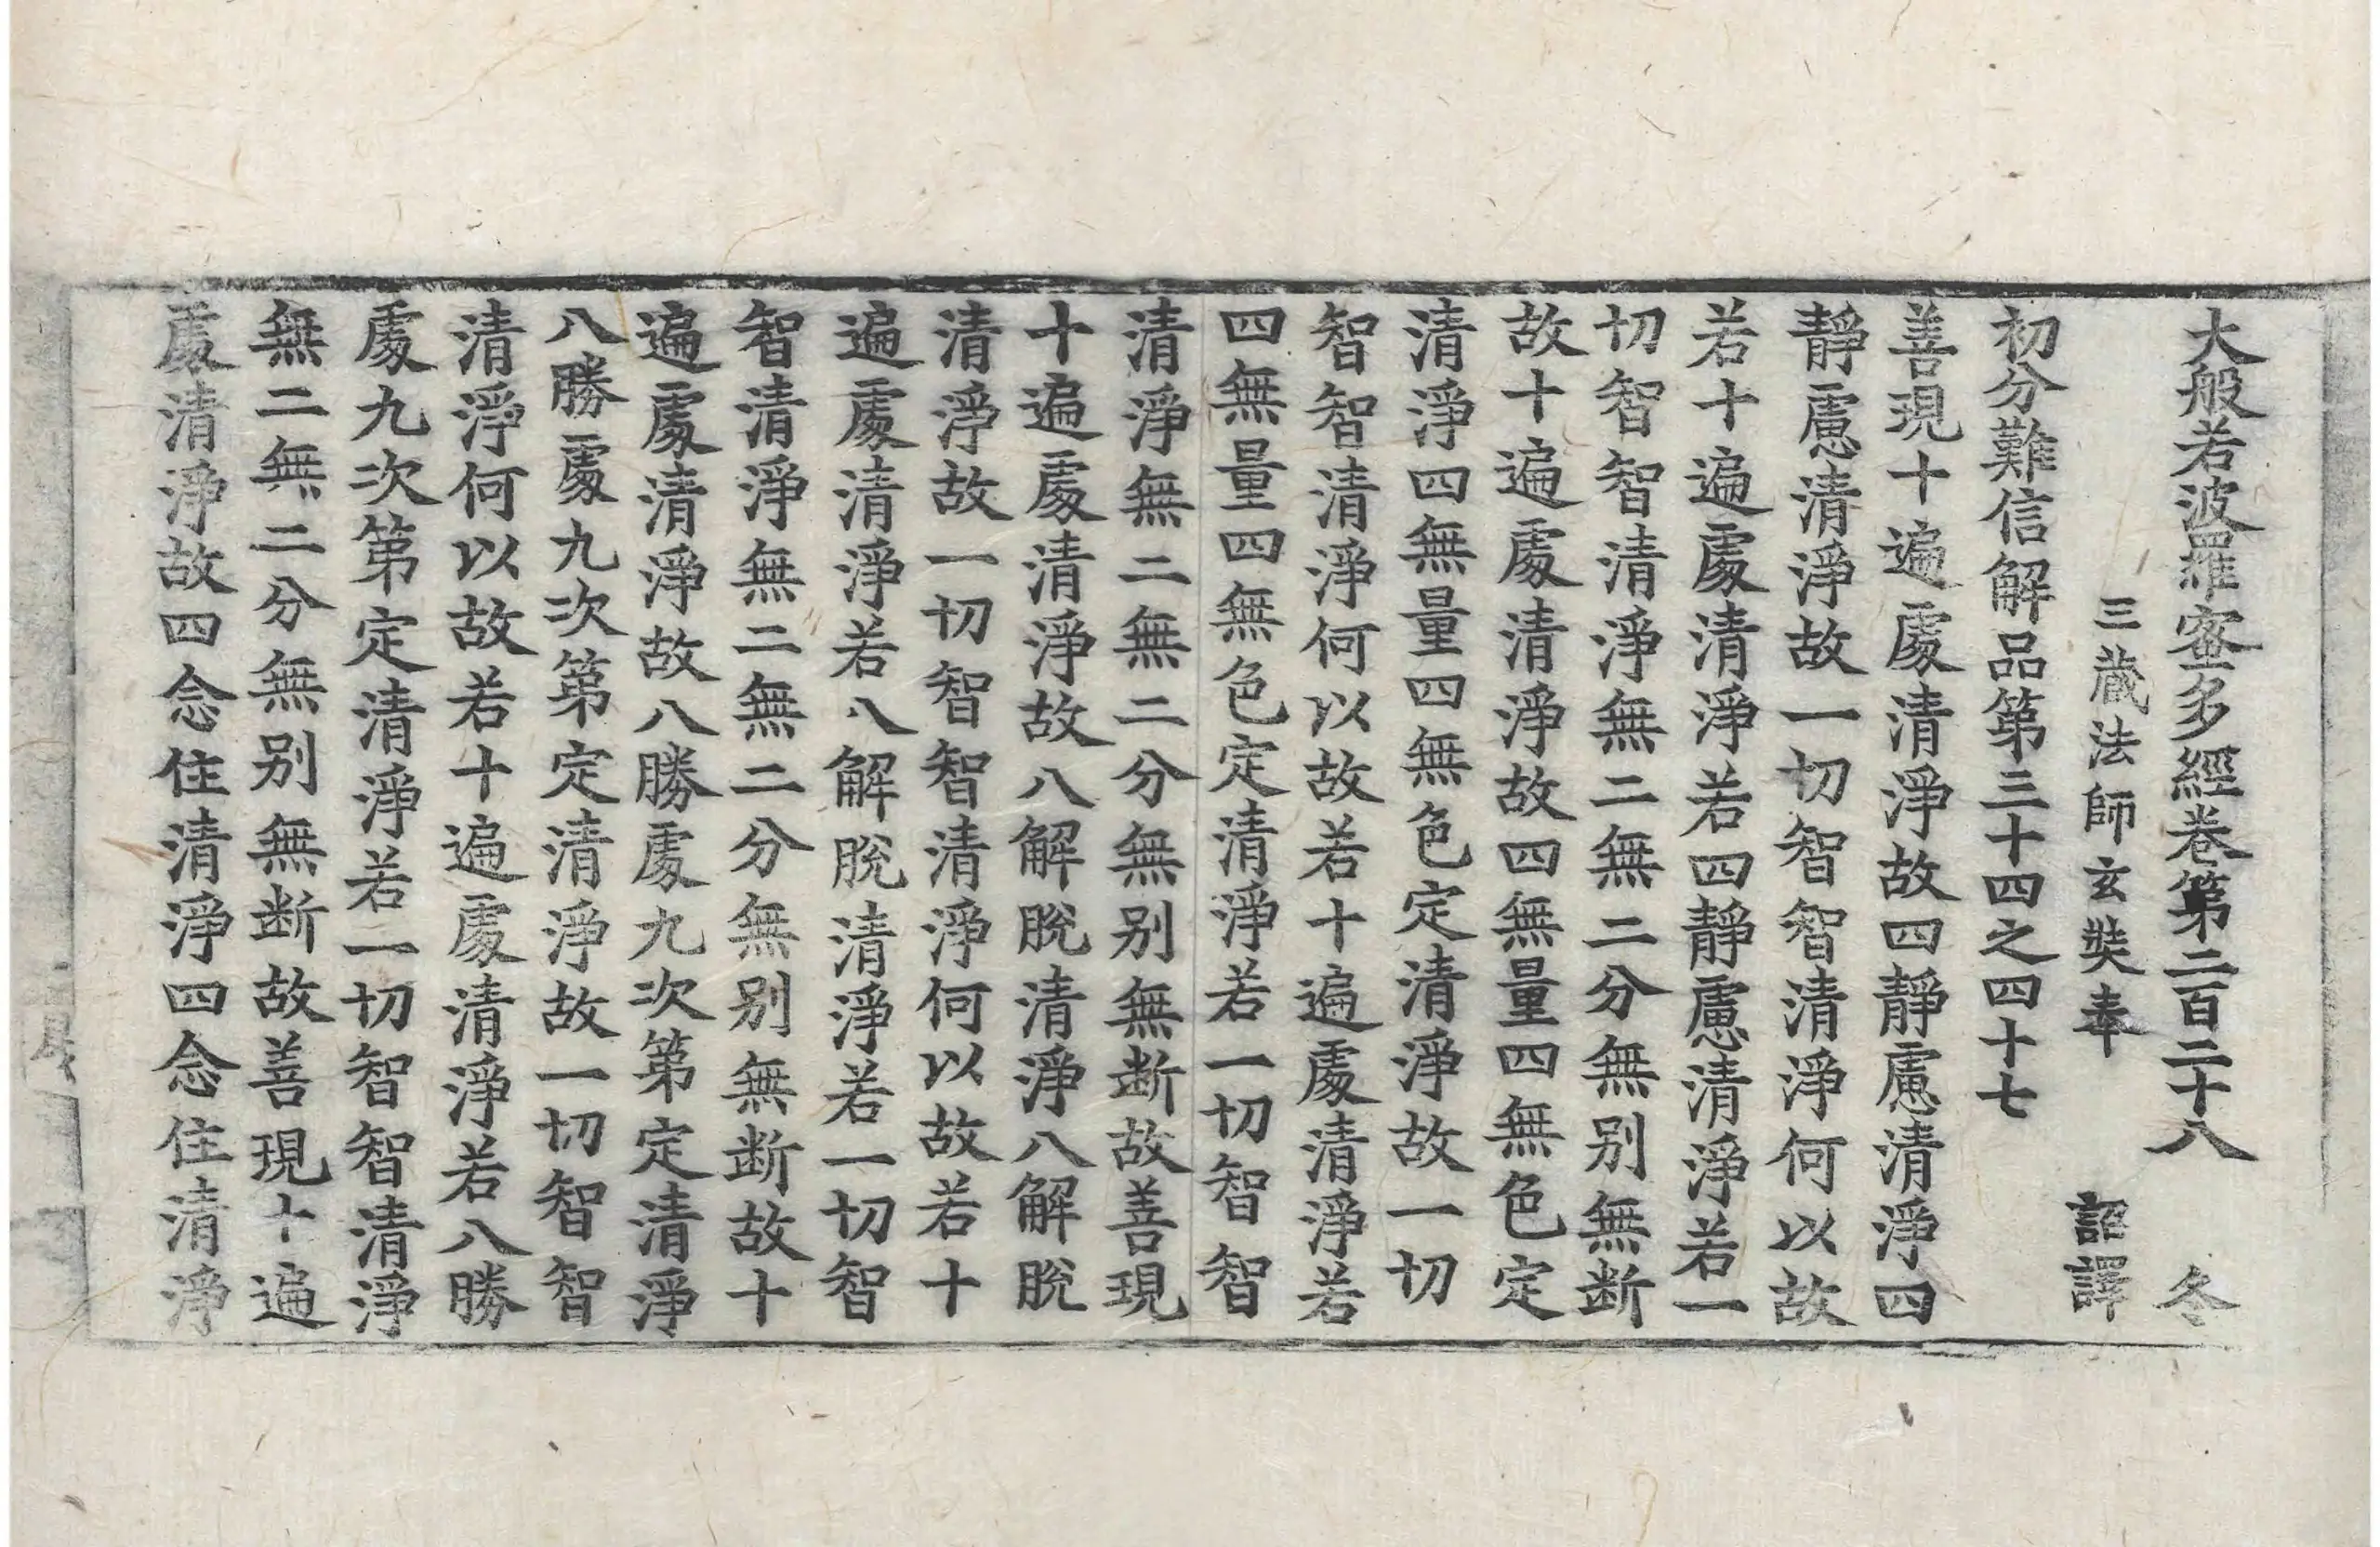 大般若波羅蜜多經卷第二百二十八 冬
三藏法師玄奘奉 詔譯
初分難信解品第三十四之四十七
善現十遍處清淨故四靜慮清淨四
靜慮清淨故一切智智清淨何以故
若十遍處清淨若四靜慮清淨若一
切智智清淨無二無二分無别無断
故十遍處清淨故四無量四無色定
清淨四無量四無色定清淨故一切
智智清淨何以故若十遍處清淨若
四無量四無色定清淨若一切智智
清淨無二無二分無别無断故善現
十遍處清淨故八解脫清淨八解脫
清淨故一切智智清淨何以故若十
遍處清淨若八解脫清淨若一切智
智清淨無二無二分無别無断故十
遍處清淨故八勝處九次第定清淨
八勝處九次第定清淨故一切智智
清淨何以故若十遍處清淨若八勝
處九次第定清淨若一切智智清淨
無二無二分無别無断故善現十遍
處清淨故四念住清淨四念住清淨